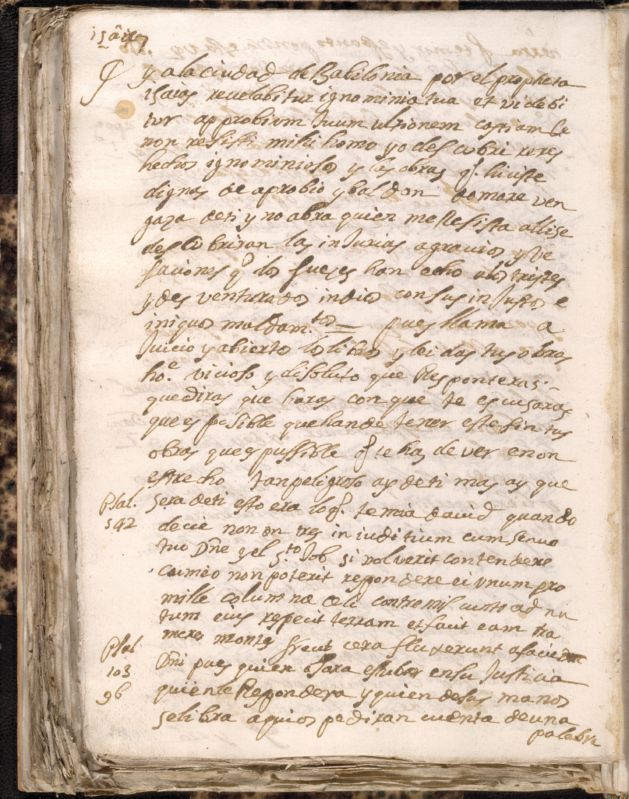 y a la ciudad de Babilonia por el propheta
revelabitur ignominia tua et videbi
tur aprobiom tuum ultionem capiam &
non resistit mihi homo yo descubrire tus
hechos ignominiosos y las obras q̃ hiciste
dignas de aprobio y baldon tomare ven
gaza de ti y no abra quien me Resista alli se
descubriran las injurias agravios y ve
faciones q̃ los jueses han echo a los tristes
y des venturados indios con sus injustos e
iniquos mandam.tos = pues llama a
Juicio y abiertos los libros y leidas tus obras
ho.e vicioso y disoluto que Responderas
que diras que haras con que te escusaras
que es posible que han de tener este fin tus
obras que es pussible q̃ te has de ver en on
estrecho tan peligroso ay de ti mas ay que
Psal.
142
sera de ti esto era lo q̃ temia david quando
decie non in tres in iuditium cum servo
tuo Dñe y el S.to Job si voluerit contendere
cum eo non poterit respondere ei unum pro
mille columnæ celi contremis cunt ad nu
tum eius respecit terram et facit eam tre
Psal.
103
96
mere montes sicut cera fluxerunt a facie
Dñi pues quien osara estubar en su Justicia
quien le Respondera y quien de sus manos
se libra a quios pediran cuenta de una
palabra